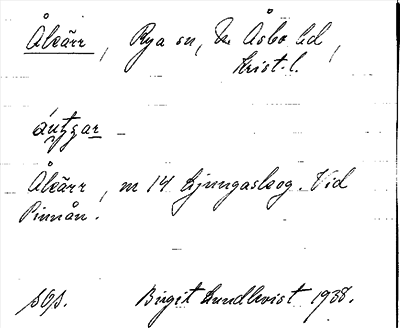 Åkärr, Rya sn, N. Åsbo hd,
Krist. l.
Åkärr, nr 14 Ljungaskog. Vid
Pinnån.
Birgit Lundkvist 1938.